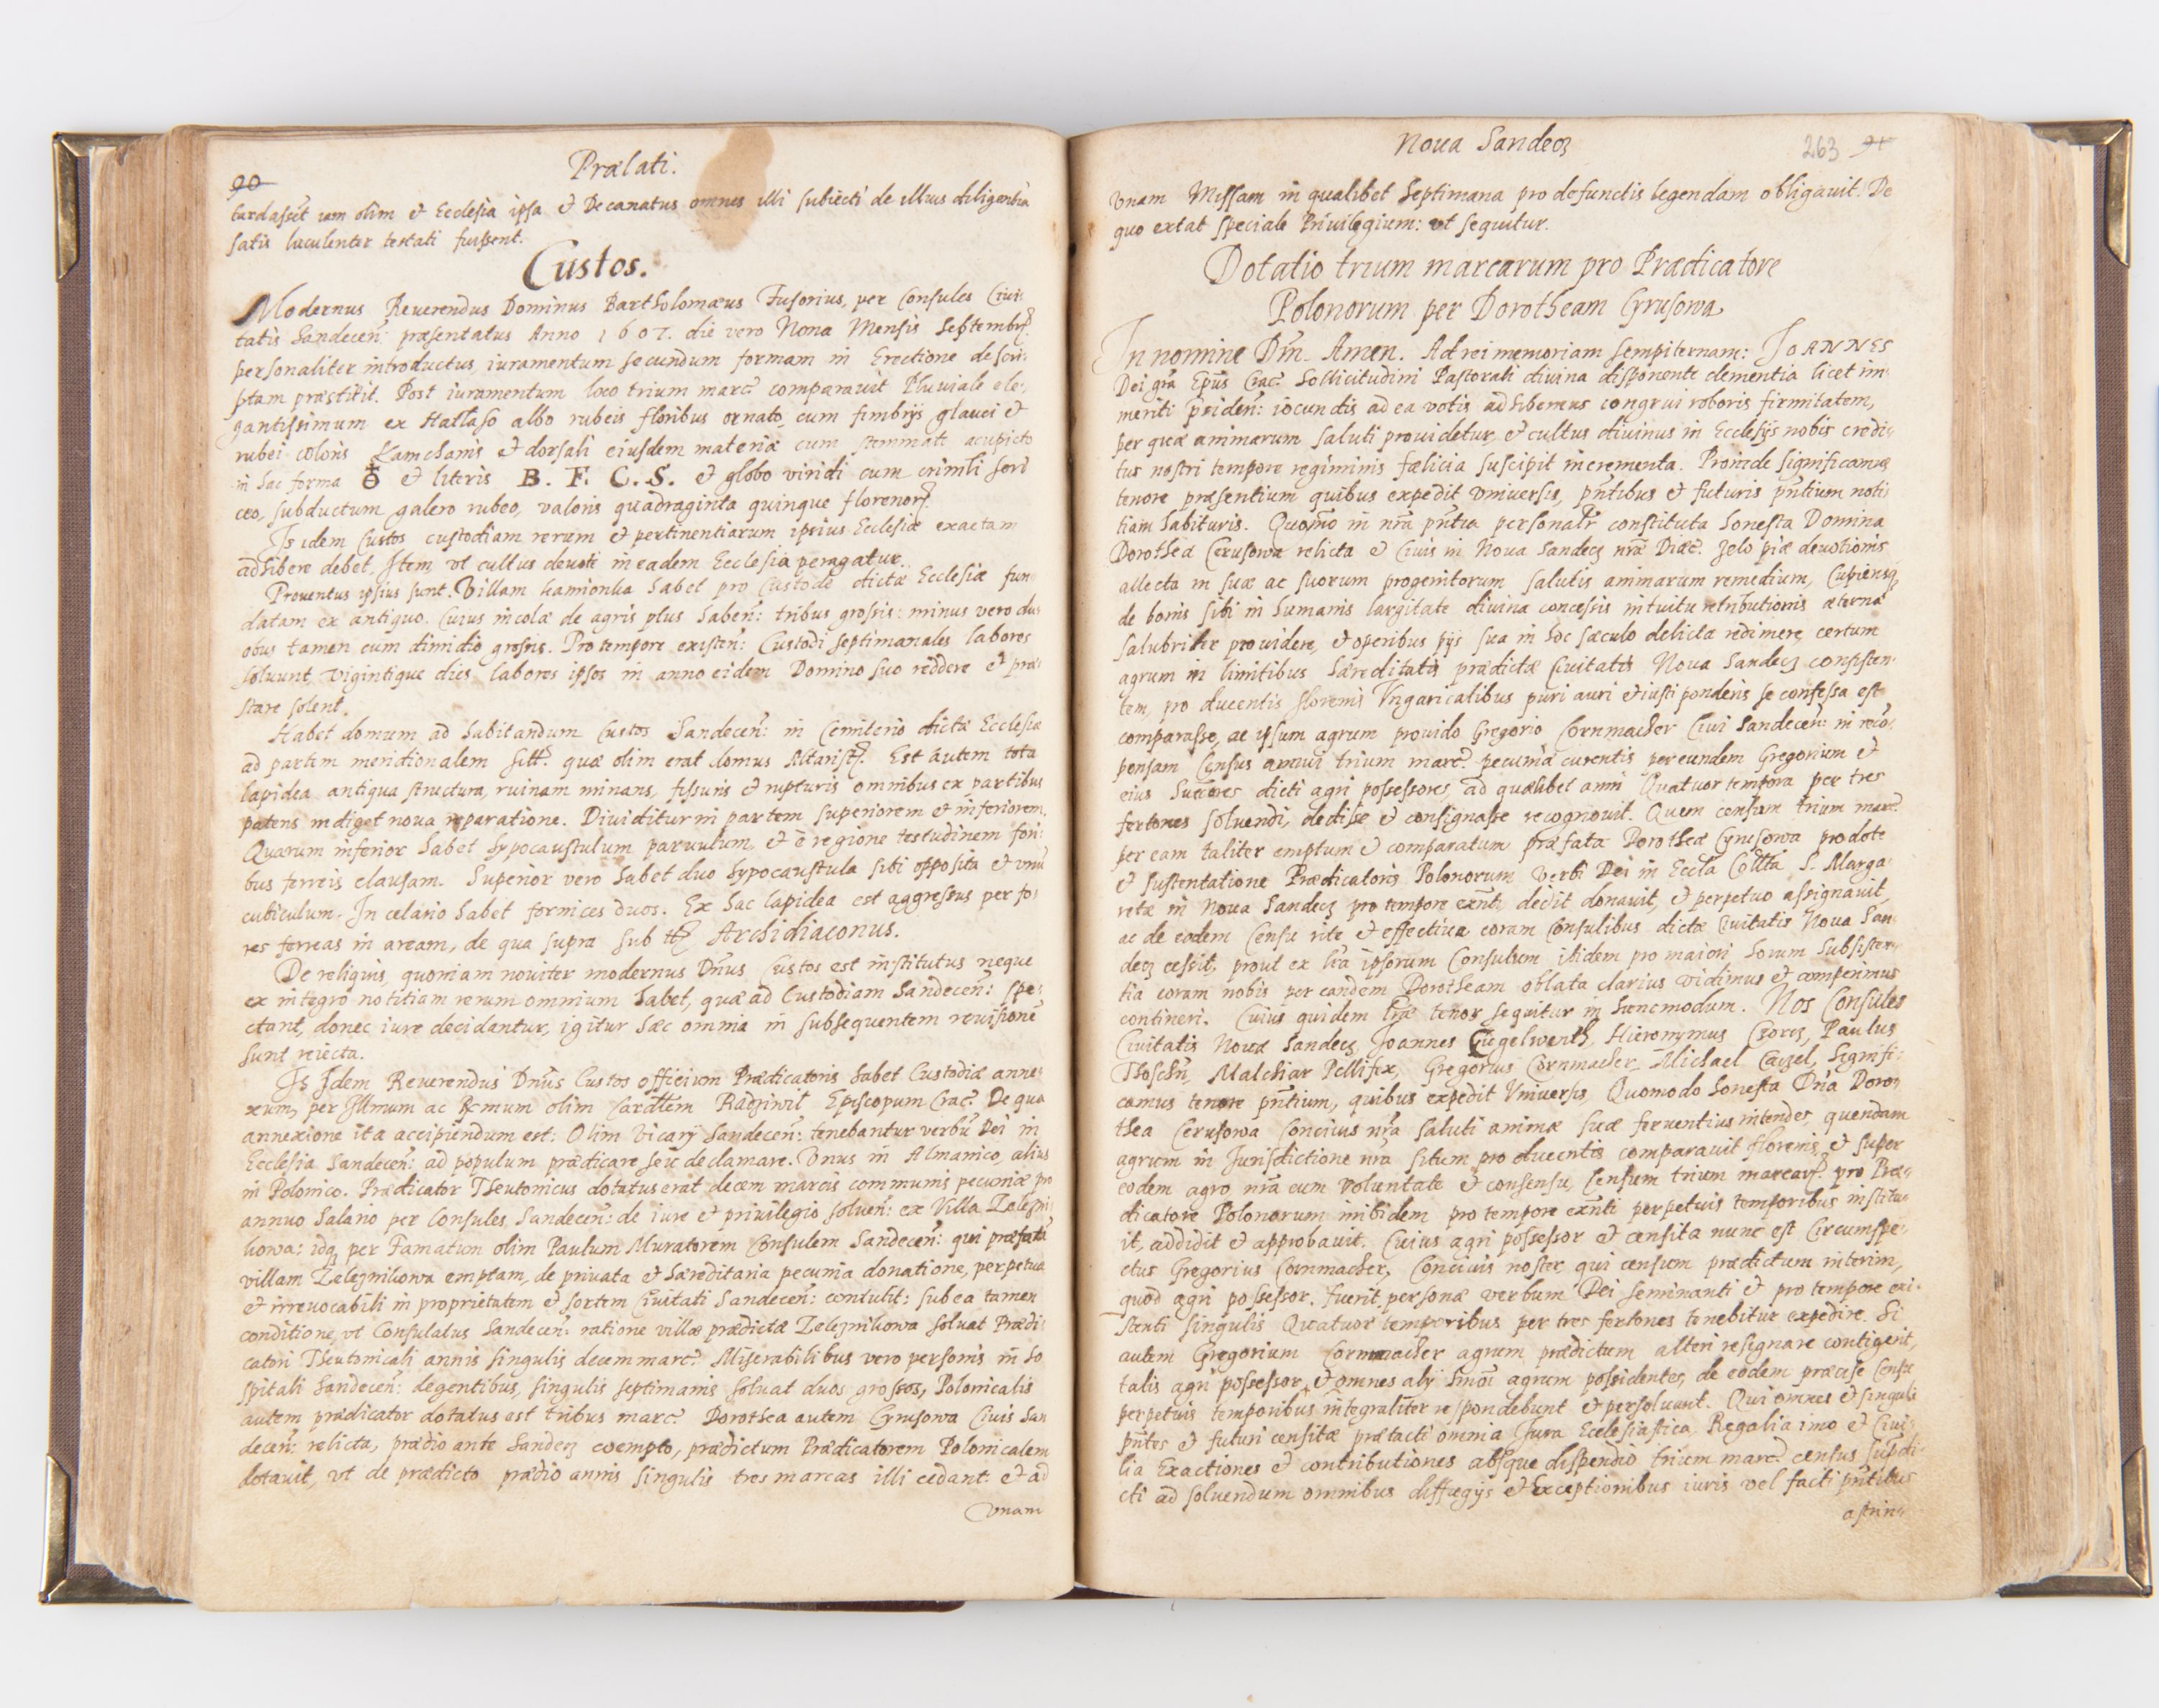 90
Prælati.
tardasset iam olim et Ecclesia ipsa et Decanatus omnes illi subiecti de illius diligentia
satis luculenter testati fuissent.
Custos.
Modernus Reuerendus Dominus Bartholomæus Fusorius, per Consules Ciui:
tatis Sandeceñ: præsentatus Anno 1607. die vero Nona Mensis Septembrꝭ
personaliter introductus iuramentum secundum formam in Erectione descri:
ptam præstitit. Post iuramentum loco trium marc. comparauit Pluuiale ele:
gantissimum ex Hatlaso albo rubeis floribus ornato, cum fimbrijs glauci et
rubei coloris Kamchanis et dorsali eiusdem materiæ cum stemmate acupicto
in hac forma ♁ et literis B. F. C. S. et globo viridi cum crinili seri
ceo, subductum galero rubeo, valoris quadraginta quinque florenorꝝ.
Is idem Custos custodiam rerum et pertinentiarum ipsius Ecclesiæ exactam
adhibere debet. Item, vt cultus deuote in eadem Ecclesia peragatur.
Prouentus ipsius sunt. Villam Kamionka habet pro Custode dictæ Ecclesiæ fun
datam ex antiquo. Cuius incolæ de agris plus habeñ: tribus grossis: minus vero du
obus tamen cum dimidio grossis. Pro tempore existeñ: Custodi septimanales labores
soluunt vigintique dies labores ipsos in anno eidem Domino suo reddere et præ:
stare solent.
Habet domum ad habitandum Custos Sandeceñ: in Cemiterio dictæ Ecclesiæ
ad partem meridionalem sitt. quæ olim erat domus Altaristꝝ. Est autem tota
lapidea antiqua structura, ruinam minans, fissuris et rupturis omnibus ex partibus
patens indiget noua reparatione. Diuiditur in partem superiorem et inferiorem.
Quarum inferior habet hypocaustulum paruulum, et è regione testudinem fori:
bus ferreis clausam. Superior vero habet duo hypocaustula sibi opposita et vnũ
cubiculum. In celario habet fornices duos. Ex hac lapidea est aggressus per fo:
res ferreas in aream, de qua supra sub ttꝭ Archidiaconus.
De reliquis, quoniam nouiter modernus Dñus Custos est institutus neque
ex integro notitiam rerum omnium habet, quæ ad Custodiam Sandeceñ: spe:
ctant, donec iure decidantur, igitur hæc omnia in subsequentem reuisionē
sunt reiecta.
Is Idem Reuerendus Dñus Custos officium Prædicatoris habet Custodiæ anne:
xum, per Illmum ac Rmum olim Cardllem Radziwil Episcopum Crac. De qua
annexione ita accipiendum est: Olim Vicarij Sandeceñ: tenebantur verbũ Dei in
Ecclesia Sandeceñ: ad populum prædicare seu declamare. Vnus in Almanico, alius
in Polonico. Prædicator Theutonicus dotatus erat decem marcis communis pecuniæ pro
annuo Salario per Consules Sandeceñ: de iure et priuilegio solueñ: ex Villa Zelezni
kowa: idq; per Famatum olim Paulum Muratorem Consulem Sandeceñ: qui præfatã
villam Zeleznikowa emptam, de priuata et hæreditaria pecunia donatione, perpetua
et irreuocabili in proprietatem et sortem Ciuitati Sandeceñ: contulit: sub ea tamen
conditione, vt Consulatus Sandeceñ: ratione villæ prædictæ Zeleznikowa soluat Prædi:
catori Theutonicali annis singulis decem marc. Miserabilibus vero personis in ho
spitali Sandeceñ: degentibus, singulis septimanis soluat duos grossos, Polonicalis
autem prædicator dotatus est tribus marc. Dorothea autem Cyrusowa Ciuis San
deceñ: relicta, prædio ante Sandecz coempto, prædictum Prædicatorem Polonicalem
dotauit, vt de prædicto prædio annis singulis tres marcas illi cedant et ad
vnam
Noua Sandecz
263 91
vnam Missam in qualibet Septimana pro defunctis legendam obligauit. De
quo extat speciale Priuilegium: vt sequitur.
Dotatio trium marcarum pro Prædicatore
Polonorum per Dorotheam Cyrusowa
In nomine Dñi Amen. Ad rei memoriam sempiternam: IOANNES
Dei grã Epũs Crac. Sollicitudini Pastorali diuina disponente clementia licet im
meriti pñideñ: iocundis ad ea votis adhibemus congrui roboris firmitatem,
per quæ animarum saluti prouidetur, et cultus diuinus in Ecclesijs nobis credi:
tus nostri tempore regiminis fælicia suscipit incrementa. Proinde significamus
tenore præsentium quibus expedit vniuersis, pñtibus et futuris pñtium noti:
tiam habituris. Quomõ in nrã pñtia personalr constituta honesta Domina
Dorothea Cerusowa relicta et Ciuis in Noua Sandecz nræ Diæc. zelo piæ deuotionis
allecta in suæ ac suorum progenitorum salutis animarum remedium, Cupiensq;
de bonis sibi in humanis largitate diuina concessis intuitu retributionis æternæ
salubriter prouidere, et operibus pijs sua in hoc sæculo delicta redimere, certum
agrum in limitibus hæreditatis prædictæ Ciuitatis Noua Sandecz consisten:
tem, pro ducentis florenis Vngaricalibus puri auri et iusti ponderis se confessa est
comparasse, ac ipsum agrum prouido Gregorio Cornmacher Ciui Sandeceñ: in reco:
pensam Census annui trium marc. pecuniæ curentis per eundem Gregorium et
eius Succores dicti agri possessores, ad quælibet anni Quatuor tempora per tres
fertones soluendi, dedisse et consignasse recognouit. Quem censum trium marc.
per eam taliter emptum et comparatum præfata Dorothea Cyrusowa pro dote
et sustentatione Prædicatoris Polonorum verbi Dei in Eccla Collta S. Marga:
retæ in Noua Sandecz pro tempore exñti dedit donauit, et perpetuo assignauit,
ac de eodem Censu rite et effectiue coram Consulibus dictæ Ciuitatis Noua San
decz cessit, prout ex lra ipsorum Consulum ibidem pro maiori horum subsisten:
tia coram nobis per eandem Dorotheam oblata clarius vidimus et comperimus
contineri. Cuius quidem lræ tenor sequitur in hunc modum. Nos Consules
Ciuitatis Noua Sandecz Joannes Gugelwerth, Hieronymus Czorcz, Paulus
Thoschñ, Malchiar Pellifex, Gregorius Cornmacher, Michael Cauzel, Signifi:
camus tenore pñtium, quibus expedit Vniuersis, Quomodo honesta Dña Doro:
thea Cerusowa Conciuis nrã saluti animæ suæ feruentius intendẽs, quendam
agrum in Jurisdictione nrã situm pro ducentis comparauit florenis, et super
eodem agro nrã cum voluntate et consensu, Censum trium marcarꝝ pro Præ:
dicatore Polonorum inibidem pro tempore exñti perpetuis temporibus institu:
it, addidit et approbauit. Cuius agri possessor et censita nunc est Circumspe:
ctus Gregorius Cornmacher, Conciuis noster, qui censum prædictum interim,
quod agri possessor fuerit, personæ verbum Dei seminanti et pro tempore exi:
stenti singulis Quatuor temporibus per tres fertones tenebitur expedire. Si
autem Gregorium Cornmacher agrum prædictum alteri resignare contigerit,
talis agri possessor, et omnes alij agrum possidentes, de eodem præcise Censu
perpetuis temporibus integraliter respondebunt et persoluent. Qui omnes et singuli
pñtes et futuri censitæ prætacti omnia Jura Ecclesiastica, Regalia imo et Ciui:
lia Exactiones et contributiones absque dispendio trium marc. census supdi:
cti ad soluendum omnibus diffugijs et Exceptionibus iuris vel facti pñtibus
astrin: